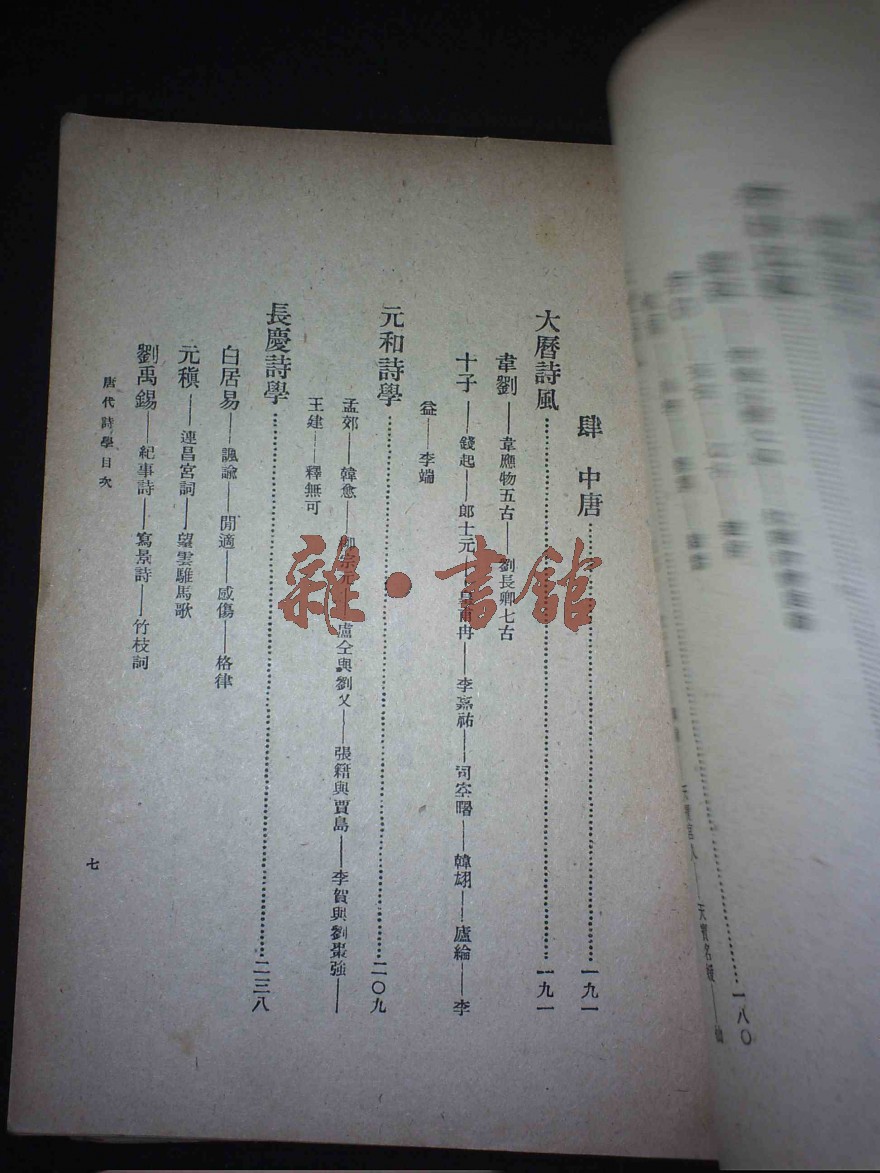 肆 中唐……一九一
大曆詩風……一九一
韋劉——韋應物五古——劉長卿七古
十子——錢起——郎士元——皇甫冉——李嘉祐——司空曙——韓翃——盧綸——李
益——李端
元和詩學……二〇九
孟郊——韓愈——柳宗元——盧仝與劉叉——張籍與賈島——李賀與劉棗強——
王建——釋無可
長慶詩學……二三八
白居易——諷諭——閒適——感傷——格律
元稹——連昌宮詞——望雲騅馬歌
劉禹錫——紀事詩——寫景詩——竹枝詞
唐代詩學目次
七
一八〇
雜·書館